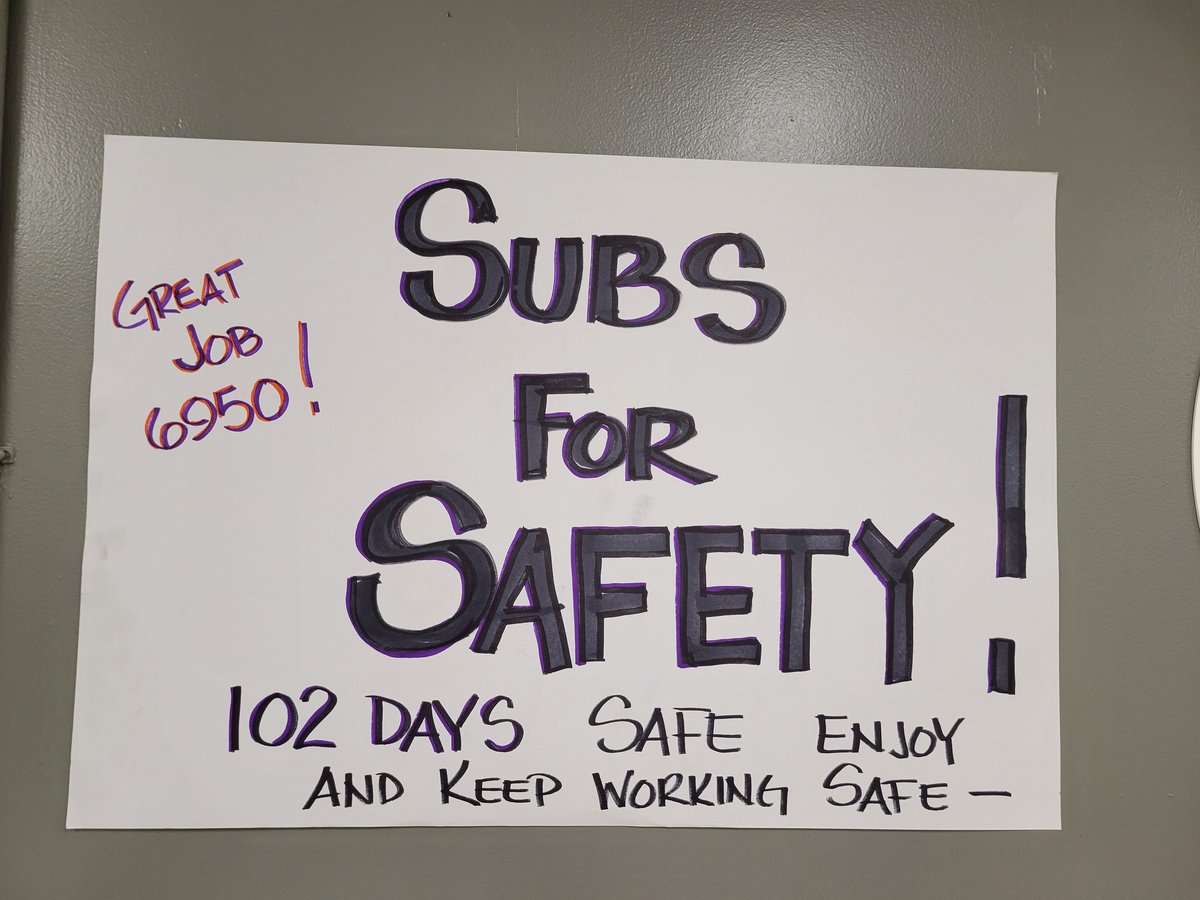 SUBS
FOR
SAFETY!
GREAT
JOB
6950!
102 DAYS SAFE ENJOY
AND KEEP WORKING SAFE —